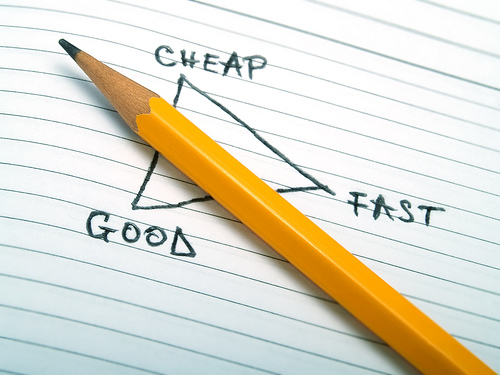 CHEAP
FAST
GOOD